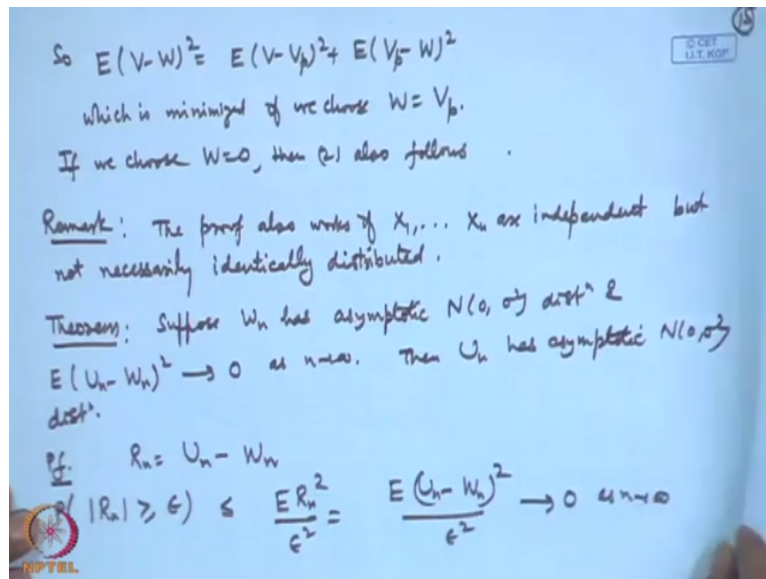 15
© CET
I.I.T. KGP
So E(V-W)² = E(V-Vp)² + E(Vp-W)²
which is minimized if we choose W = Vp.
If we choose W=0, then (2) also follows.
Remark: The proof also works if X₁,... Xₙ are independent but
not necessarily identically distributed.
Theorem: Suppose Wₙ has asymptotic N(0, σ²) distⁿ &
E(Uₙ-Wₙ)² → 0 as n→∞. Then Uₙ has asymptotic N(0,σ²)
distⁿ.
Pf. Rₙ = Uₙ - Wₙ
P(|Rₙ| ≥ ε) ≤ E Rₙ²/ε² = E(Uₙ-Wₙ)²/ε² → 0 as n→∞
NPTEL